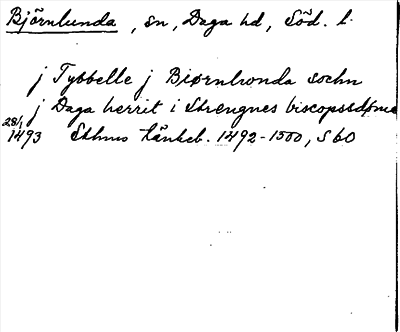 Björnlunda, sn, Daga hd, Söd. l.
j Tybbelle j Biørnlwonda sochn
j Daga herrit i Strengnes biscopsdøme
28/1 1493 Sthms tänkeb. 1492-1500, S 60